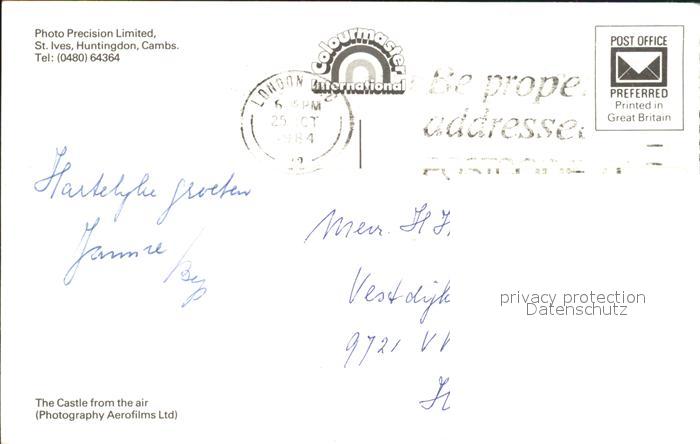 Photo Precision Limited,
St. Ives, Huntingdon, Cambs.
Tel: (0480) 64364
Colourmaster
International
LONDON
PM
25 OCT
1984
Be prope
addresse
POST OFFICE
PREFERRED
Printed in
Great Britain
Hartelijke groeten
Mevr. H
Vestdijk
9721 V
privacy protection
Datenschutz
The Castle from the air
(Photography Aerofilms Ltd)